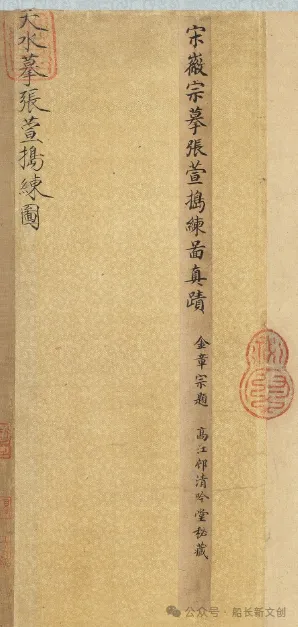 宋徽宗摹張萱搗練啚真蹟 金章宗題 高江邨清吟堂秘藏
天水摹張萱搗練圖
公众号 · 船长新文创